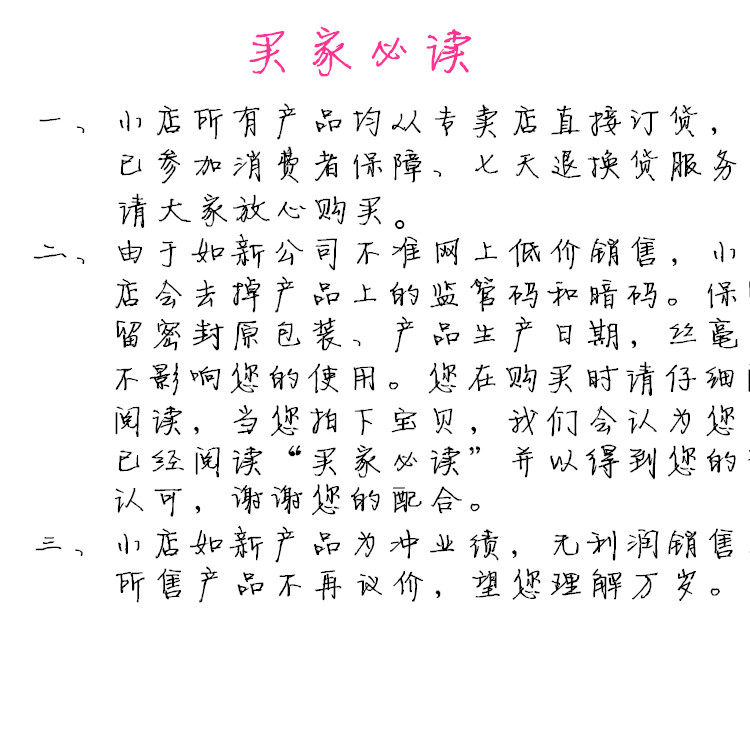 买家必读
一、小店所有产品均从专卖店直接订货，
已参加消费者保障、七天退换货服务
请大家放心购买。
二、由于如新公司不准网上低价销售，小
店会去掉产品上的监管码和暗码。保
留密封原包装、产品生产日期，丝毫
不影响您的使用。您在购买时请仔细
阅读，当您拍下宝贝，我们会认为您
已经阅读“买家必读”并以得到您的
认可，谢谢您的配合。
三、小店如新产品为冲业绩，无利润销售
所售产品不再议价，望您理解万岁。